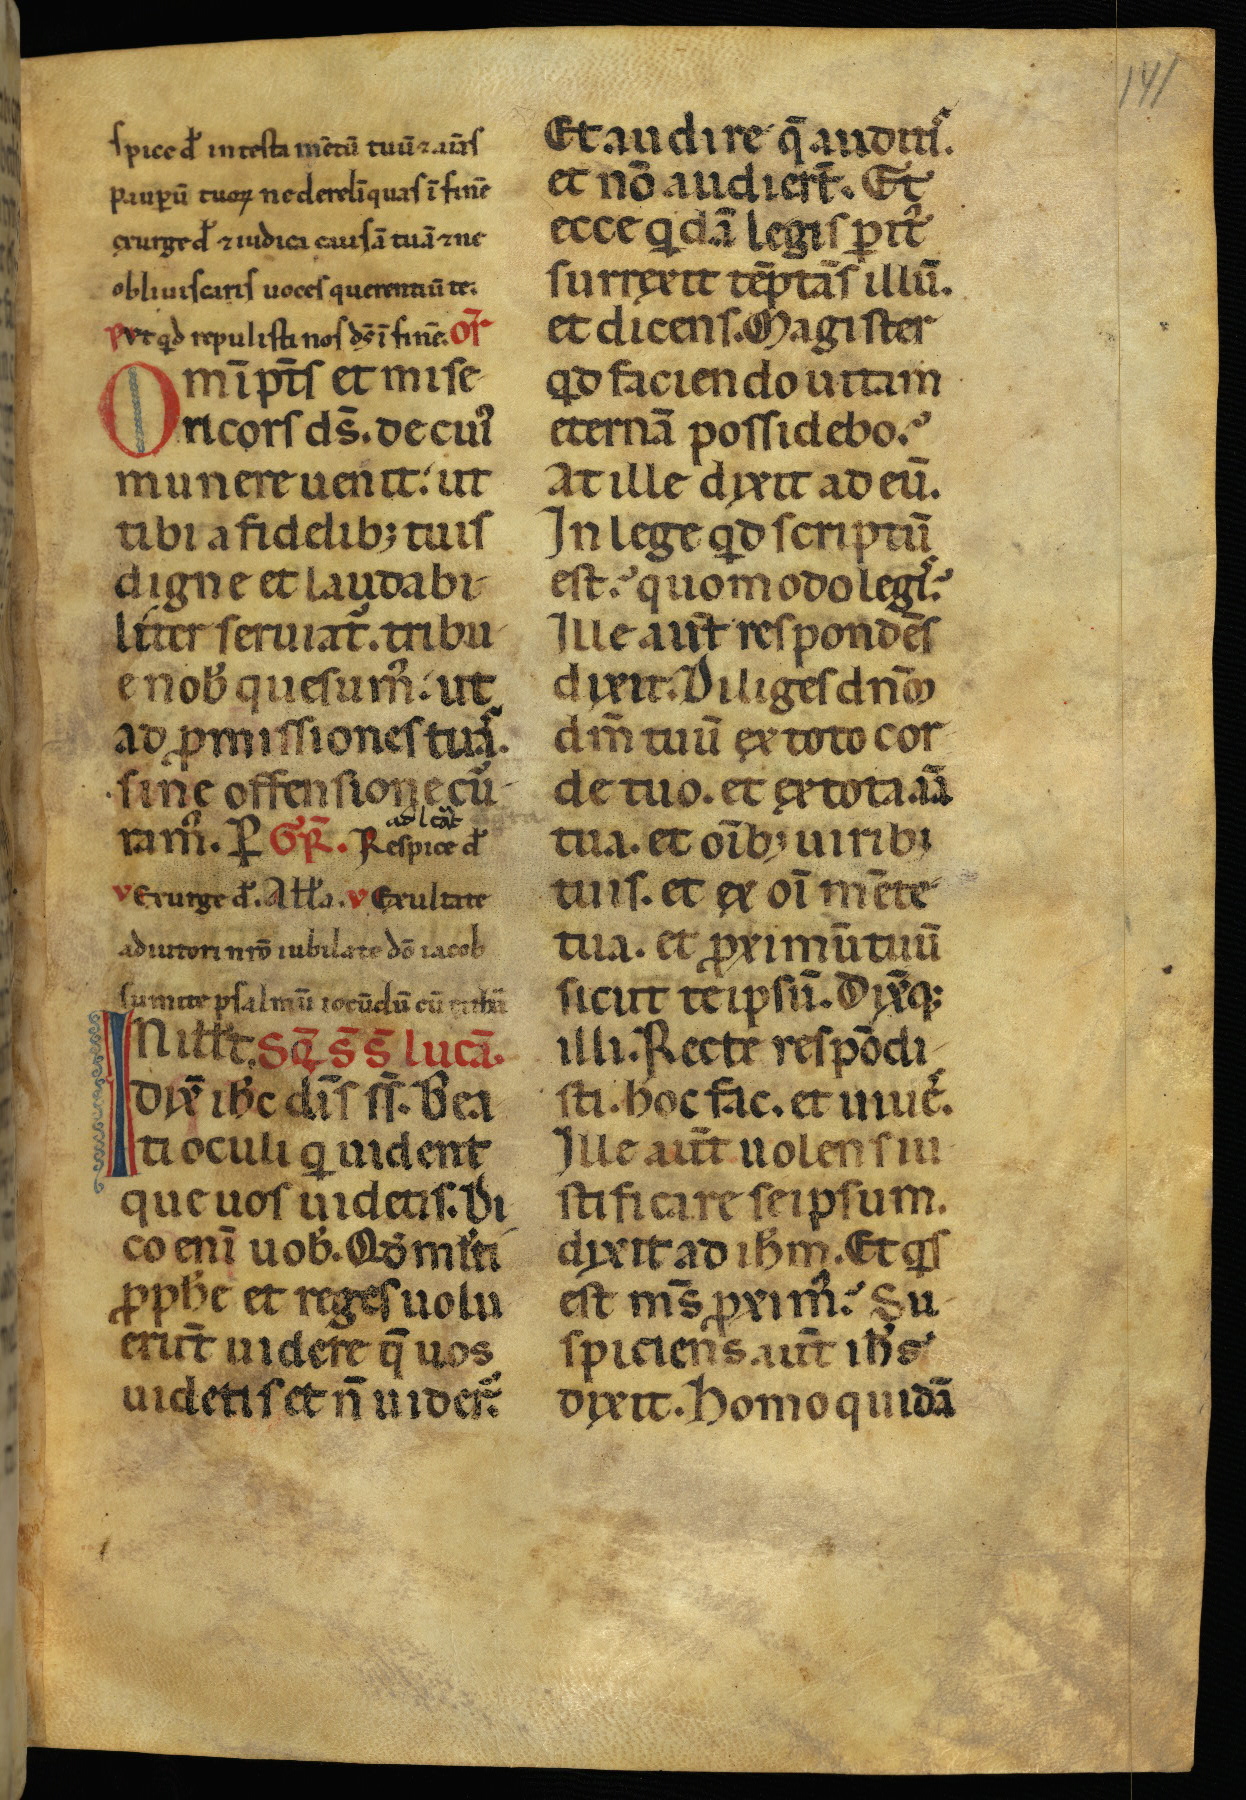 141
spice dˉ in testamētū tuū ⁊ aīas
paupū tuoꝝ ne derelīquas ī finē
exurge dˉ ⁊ iudica causā tuā ⁊ ne
obliuiscaris uoces querentiū te.
P Vt qͥd repulisti nos dꝰ ī finē. Oꝛ̄
Omīpt̄s et mise
ricors ds̄. de cuiꝰ
munere uenit. ut
tibi a fidelibꝫ tuis
digne et laudabi
liter seruiat᷑. tribu
e nob̄ quesumꝰ. ut
ad ꝓmissiones tuas.
sine offensione cur
ramꝰ. P̄ Gr̄. Respice dˉ
V Exurge dˉ. Alla. V Exultate
adiutori nr̄o iubilate dō iacob
sumite psalmū iocūdū cū
IN ill t. Sꝗ̄ s̄ s̄ lucā.
Dix̄ ihc̄ dis̄ ss̄. Bea
ti oculi qͥ uident
que uos uidetis. Di
co eni uob̄. Qd̄ multi
ꝓphe et reges uolu
erūt uidere q̄ uos
uidetis et n̄ uider̄.
Et audire q̄ auditis.
et nō audiert̄. Et
ecce qͥdā legis perit᷑
surrexit tēptās illū.
et dicens. Magister
qͥd faciendo uitam
eternā possidebo.
At ille dixit ad eū.
In lege qͥd scriptū
est. quomodo legis.
Ille aut̄ respondēs
dixit. Diliges dn̄m
dm̄ tuū ex toto cor
de tuo. et ex tota aīa
tua. et oībꝫ uiribꝫ
tuis. et ex oī mēte
tua. et ꝓximū tuū
sicut te ipsū. Dix̄qꝫ
illi. Recte respōdi
sti. hoc fac. et uiues.
Ille aut̄ uolens iu
stificare seipsum.
dixit ad ihm̄. Et qͥs
est ms̄ ꝓximꝰ. Su
spiciens aut̄ ihs̄
dixit. Homo quidā